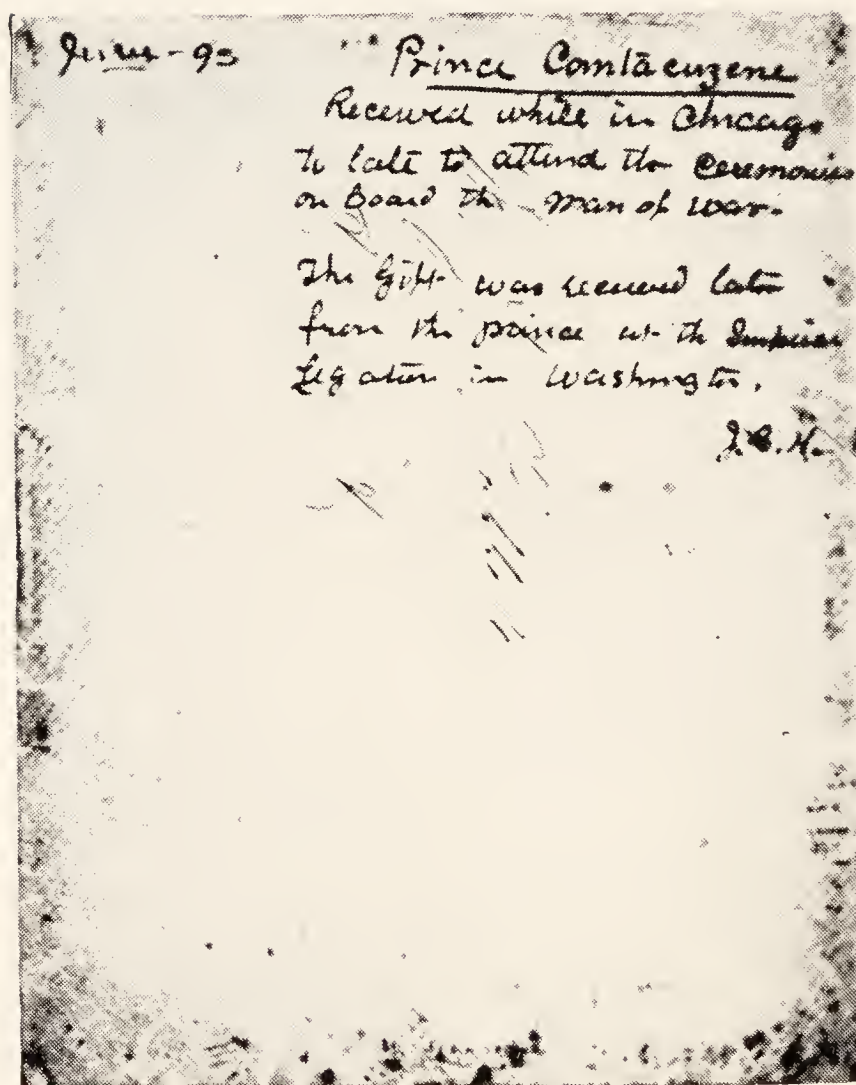 June - 93
Prince Comtacuzene
Received while in Chicago
to late to attend the Ceremonies
on Board the man of war.
The Gift was received later
from the prince with Imperial
Legation in Washington.
J.C.H.